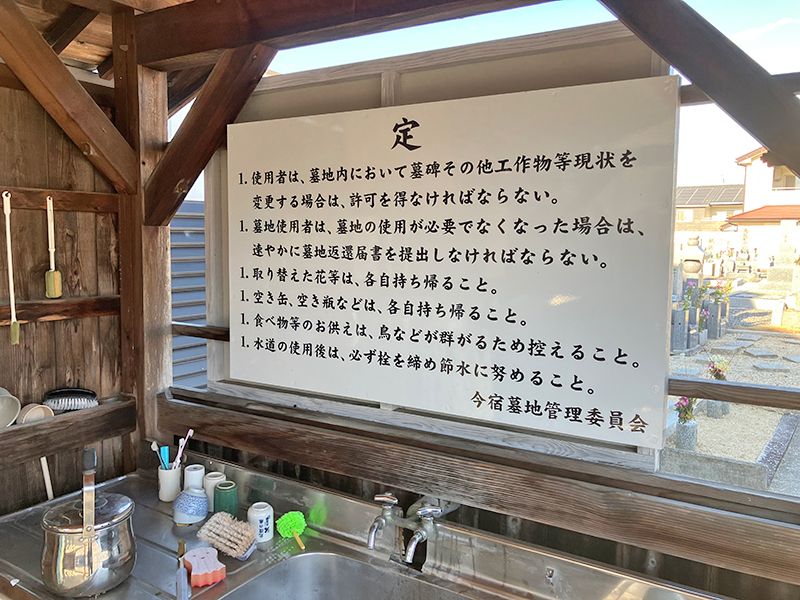 定
1. 使用者は、墓地内において墓碑その他工作物等現状を
変更する場合は、許可を得なければならない。
1. 墓地使用者は、墓地の使用が必要でなくなった場合は、
速やかに墓地返還届書を提出しなければならない。
1. 取り替えた花等は、各自持ち帰ること。
1. 空き缶、空き瓶などは、各自持ち帰ること。
1. 食べ物等のお供えは、鳥などが群がるため控えること。
1. 水道の使用後は、必ず栓を締め節水に努めること。
今宿墓地管理委員会